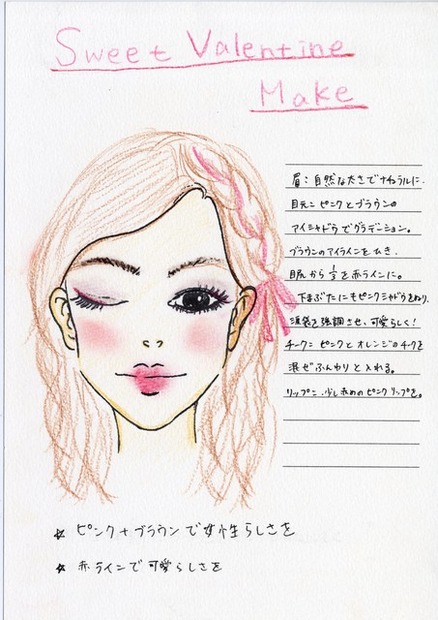 Sweet Valentine
Make
眉：自然な太さでナチュラルに。
目元：ピンクとブラウンの
アイシャドウでグラデーション。
ブラウンのアイラインをひき、
目尻から1/3を赤ラインに。
下まぶたにもピンクシャドウをぬり、
涙袋を強調させ、可愛らしく！
チーク：ピンクとオレンジのチークを
混ぜふんわりと入れる。
リップ：少し赤めのピンクリップを。
☆ ピンク+ブラウンで女性らしさを
☆ 赤ラインで可愛らしさを